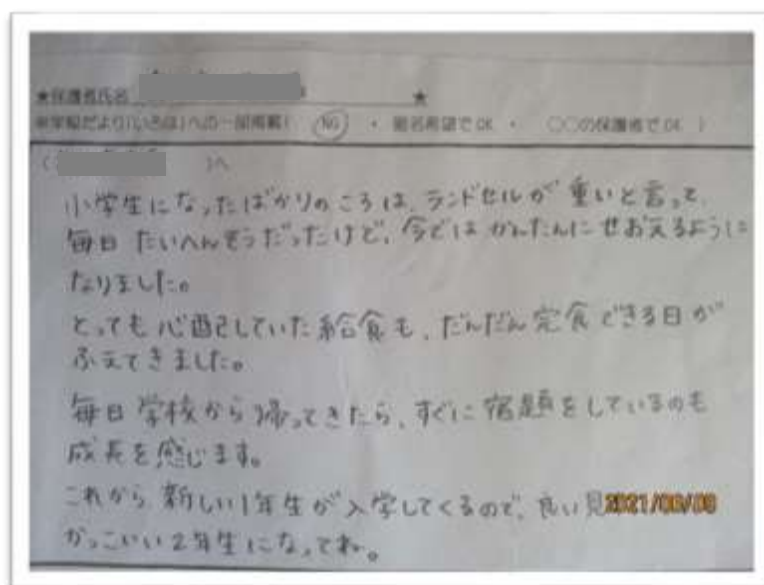 ★保護者氏名 ★
※学級だより「いろは」への一部掲載( NG ・ 匿名希望でOK ・ 〇〇の保護者でOK )
( )へ
小学生になったばかりのころは、ランドセルが重いと言って、
毎日たいへんそうだったけど、今ではかんたんにせおえるように
なりました。
とっても心配していた給食も、だんだん完食できる日が
ふえてきました。
毎日学校から帰ってきたら、すぐに宿題をしているのも
成長を感じます。
これから新しい1年生が入学してくるので、良い見
かっこいい2年生になってね。